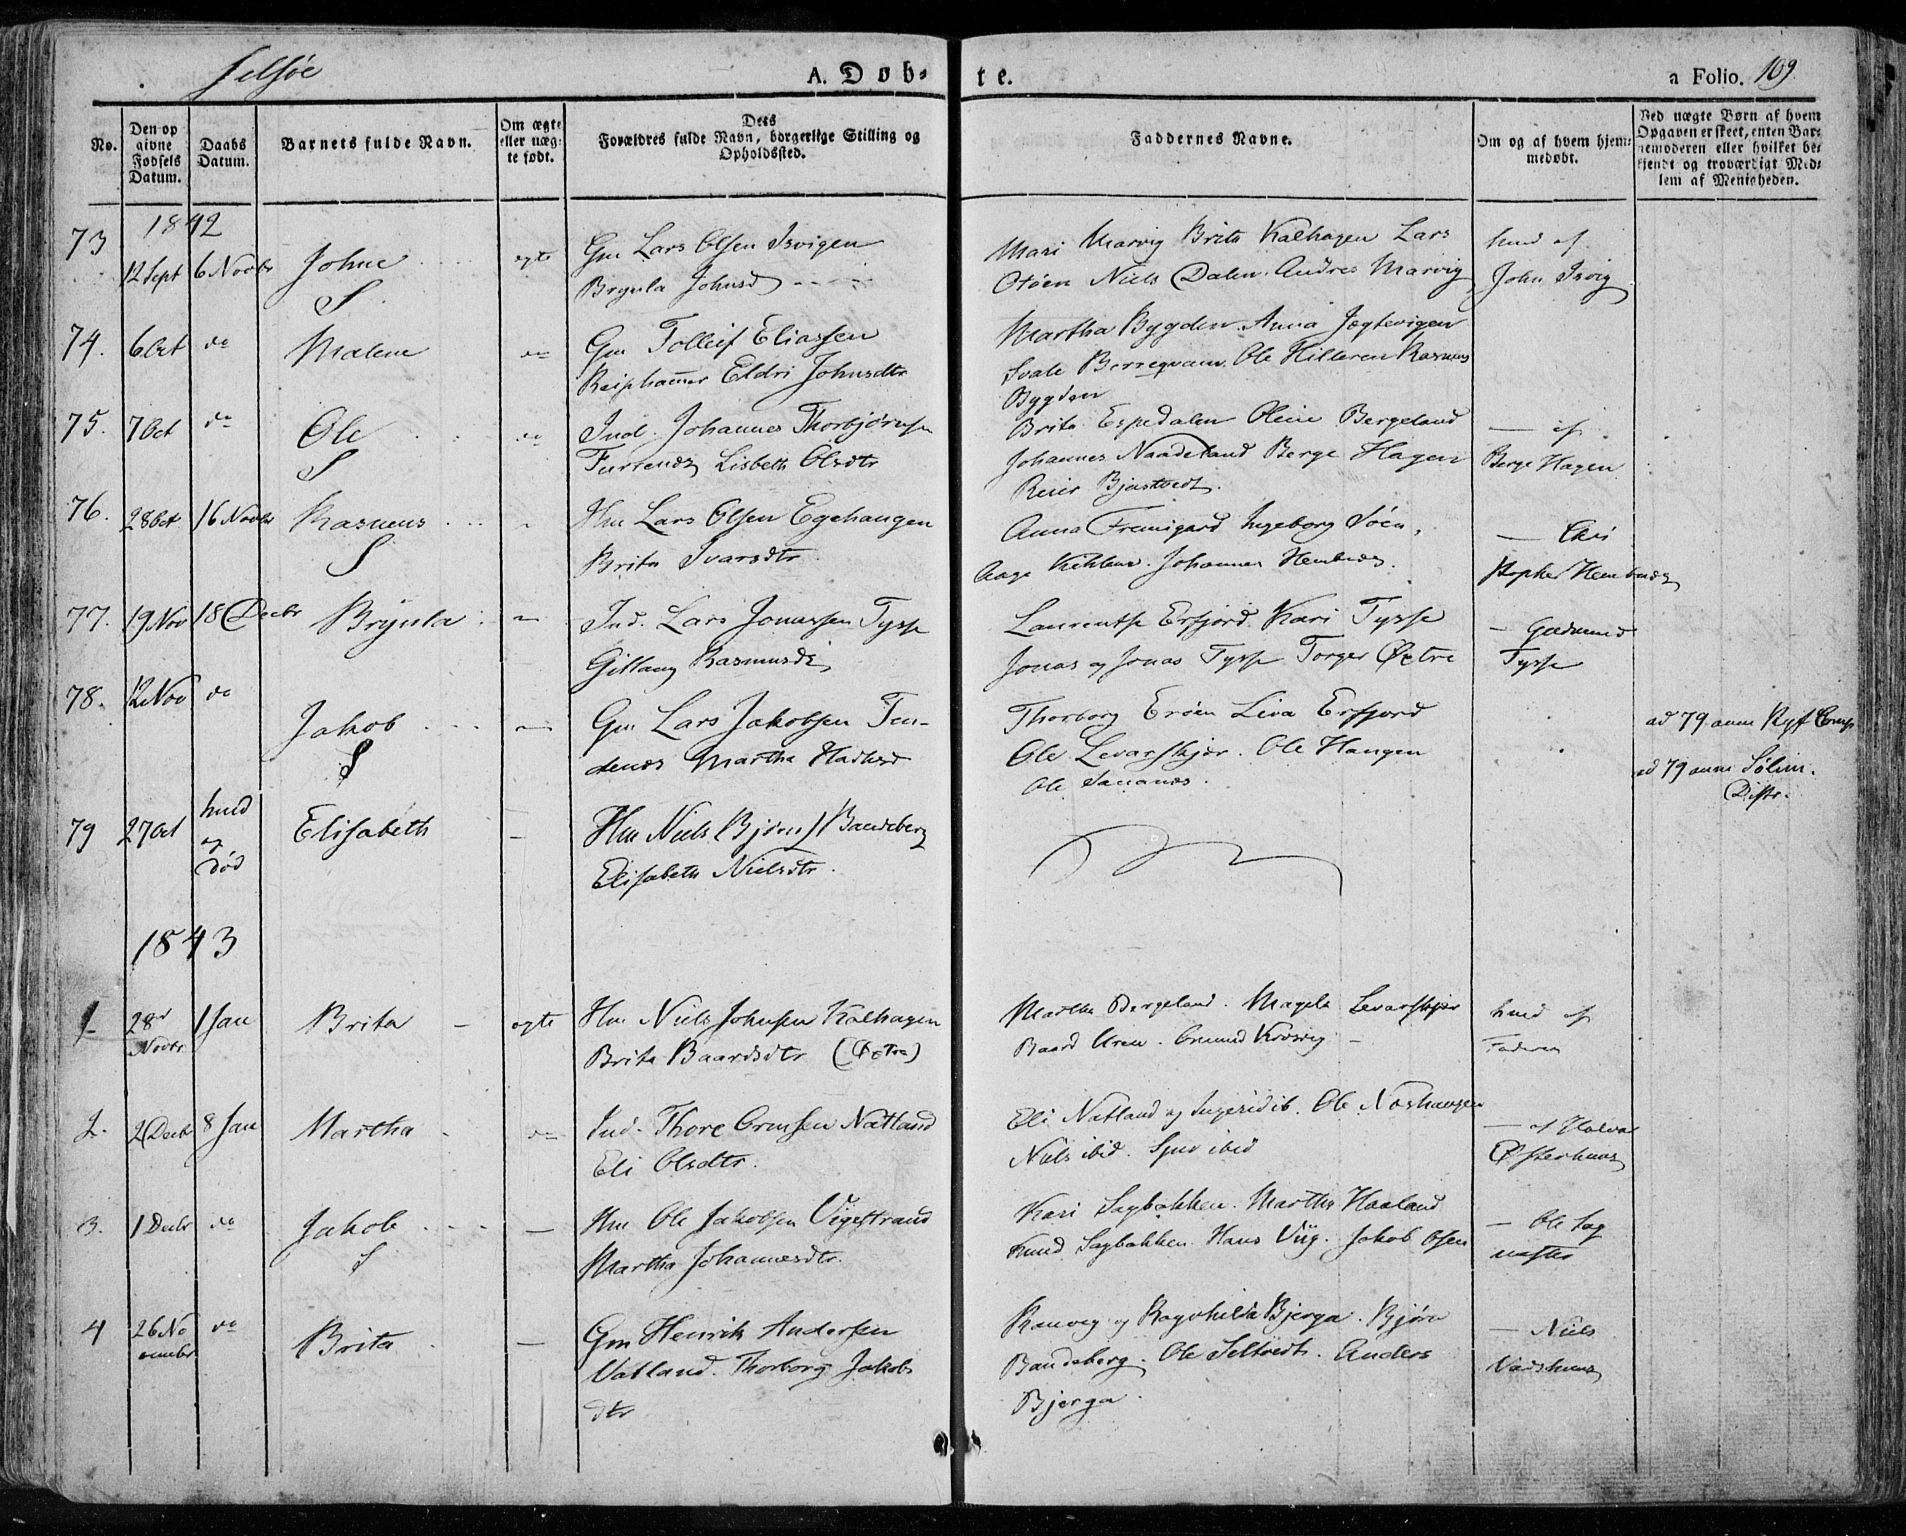 Jelsøe
A. Døb-
te.
a Folio. 109.
No.
Den op
givne
Fødsels
Datum.
Daabs
Datum.
Barnets fulde Navn.
Om ægte
eller uæg-
te født.
Dets
Forældres fulde Navn, borgerlige Stilling og
Opholdssted.
Faddernes Navne.
Om og af hvem hjem-
medøbt.
Ved uægte Børn af hvem
Opgaven er skeet, enten Bar-
nemoderen eller hvilket be-
kjendt og troværdigt Med-
lem af Menigheden.
1842
73 12 Sept 6 Novbr Johne ægte Gm Lars Olsen Isvigen
Brynla Johnsd
S
Mari Marvig Brita Kalhagen Lars
Otøen Niels Dalen. Andres Marvig
hmd af
John Isvig
74. 6 Oct do Malene do Gm Tolleif Eliassen
Reiphamer Eldri Johnsdtr
Martha Bygden. Anna Jægtevigen
Svale Borreqvam. Ole Hilleren Rasmus
Bygden
75. 7 Oct do Ole do Ind. Johannes Thorbjørnsen
Furrenæs Lisbeth Olsdtr
S
Brita Espedalen Oline Bergeland
Johannes Naadeland Berge Hagen
Reier Bjastvedt.
— af
Berge Hagen
76. 28 Oct 16 Novbr Rasmus Hm Lars Olsen Egehaugen
Brita Ivarsdtr
S
Anna Ingeborg Søen.
Aage Johannes Hembnæs.
— Chri
stopher Hembnæs
77. 19 Nov 18 Decbr Brynla — Ind. Lars Jonassen Tysse
Gitlaug Rasmusd
Laurentse Erfjord Kari Tysse
Jonas og Jonas Tysse Torger Øxtre
— Gudmund
Tysse
78. 12 Nov do Jakob — Gm Lars Jakobsen Ten-
denes Martha
S
Thorborg Erøen Liva Erfjord
Ole Levarskjær. Ole Haugen
Ole Sananæs.
ad 79 anm Ryf Comp
ad 79 anm Sølim.
Distr.
79 27 Oct hmd
og
død
Elisabeth — Hm Niels (Bjørn) Bandeberg
Elisabeth Nielsdtr.
1843
1 28d
Novbr
1 Jan Brita — ægte Hm Niels Johnsen Kalhagen
Brita Baardsdtr (Øxtra)
Martha Bergeland. Magela Levarskjær
Baard Uren. Omund Krosvig —
hmd af
Faderen
2. 2 Decbr 8 Jan Martha do Ind. Thore Ormsen Natland
Eli Olsdtr.
Eli Natland og Ingerid ib. Ole Næshaugen
Niels ibid. Sjur ibid
— af Halvor
Østerhuus
3. 1 Decbr do Jakob — Hm Ole Jakobsen Vigestrand
Martha Johannesdtr.
S
Kari Sagbakken. Martha Haaland
Knud Sagbakken Hans Viig. Jakob Osen
— Ole Sag
mester
4 26 No
vember
do Brita — Gm Henrik Andersen
Vatland. Thorborg Jakobs
dtr
Ranveg og Ragnhilda Bjerga. Bjørn
Bandeberg. Ole Seltvedt. Anders
Bjerga.
— Niels
Vadshuus